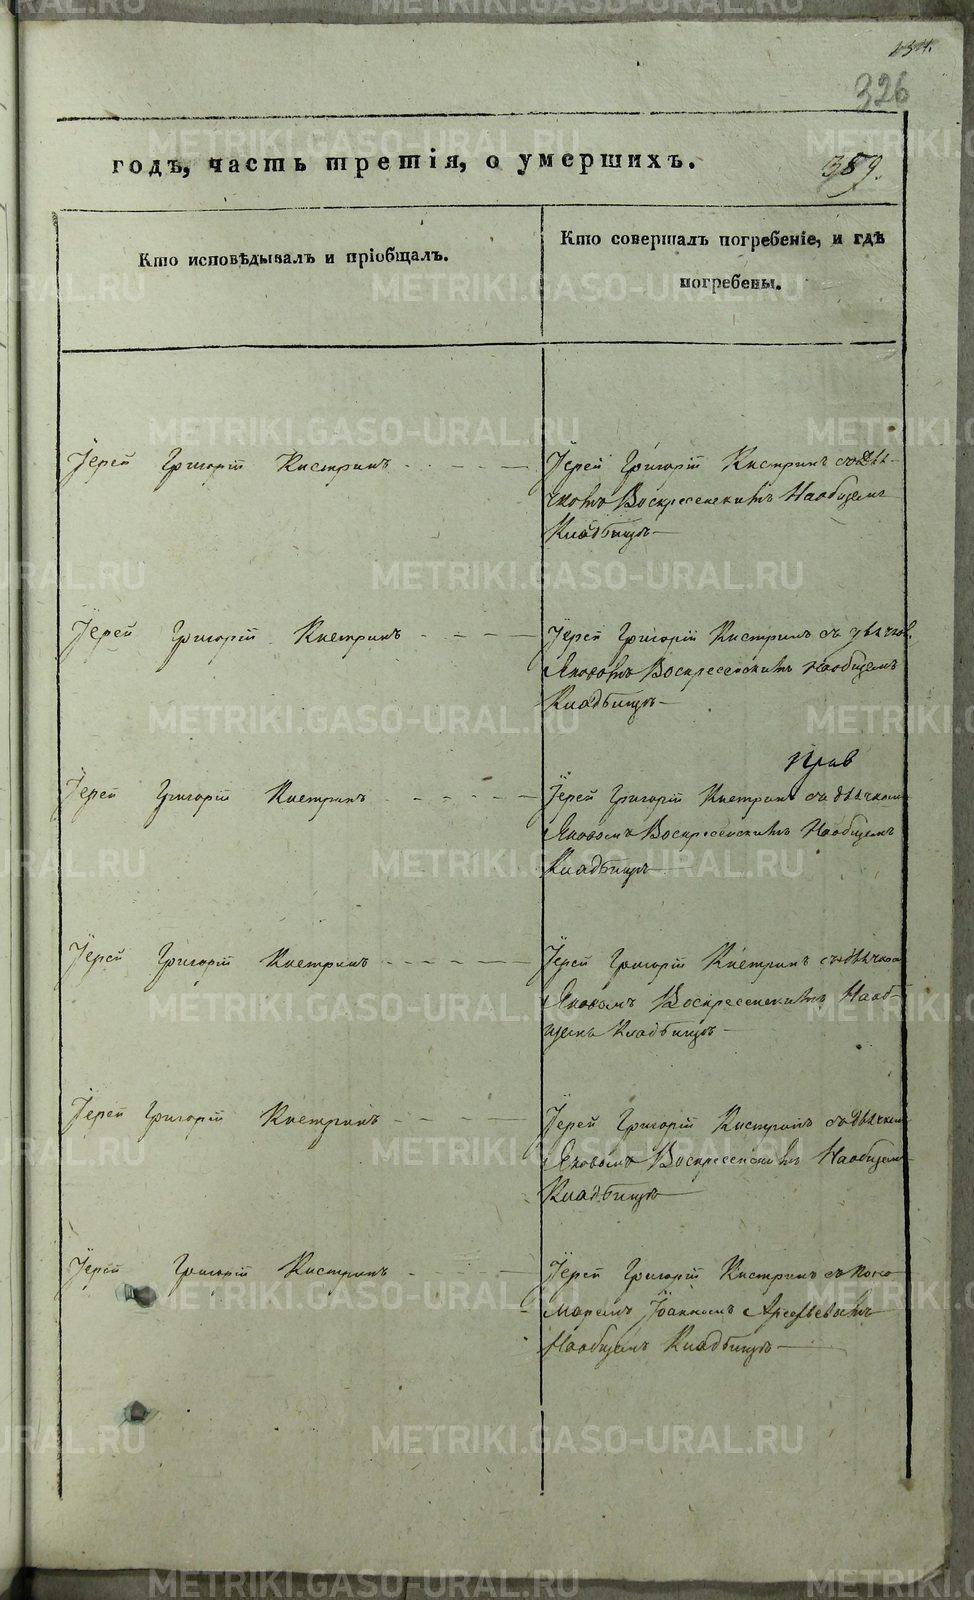 326
годъ, часть третія, о умершихъ.
359.
Кто исповѣдывалъ и пріобщалъ.
Кто совершалъ погребеніе, и гдѣ
погребены.
Іерей Григорій Кистринъ
Іерей Григорій Кистринъ съ дья-
чкомъ Воскресенскимъ На общемъ
Кладбищѣ
Іерей Григорій Кистринъ
Іерей Григорій Кистринъ съ дьячком
Яковомъ Воскресенскимъ на общемъ
Кладбищѣ
Іерей Григорій Кистринъ
Іерей Григорій Кистринъ съ дьячкомъ
Яковомъ Воскресенскимъ На общемъ
Кладбищѣ
Іерей Григорій Кистринъ
Іерей Григорій Кистринъ съ дьячком
Яковомъ Воскресенскимъ На об-
щемъ Кладбищѣ
Іерей Григорій Кистринъ
Іерей Григорій Кистринъ съ дьячком
Яковомъ Воскресенскимъ На общем
Кладбищѣ
Іерей Григорій Кистринъ
Іерей Григорій Кистринъ съ поно
маремъ Іоанномъ Арсеньевымъ
На общемъ Кладбищѣ
METRIKI.GASO-URAL.RU